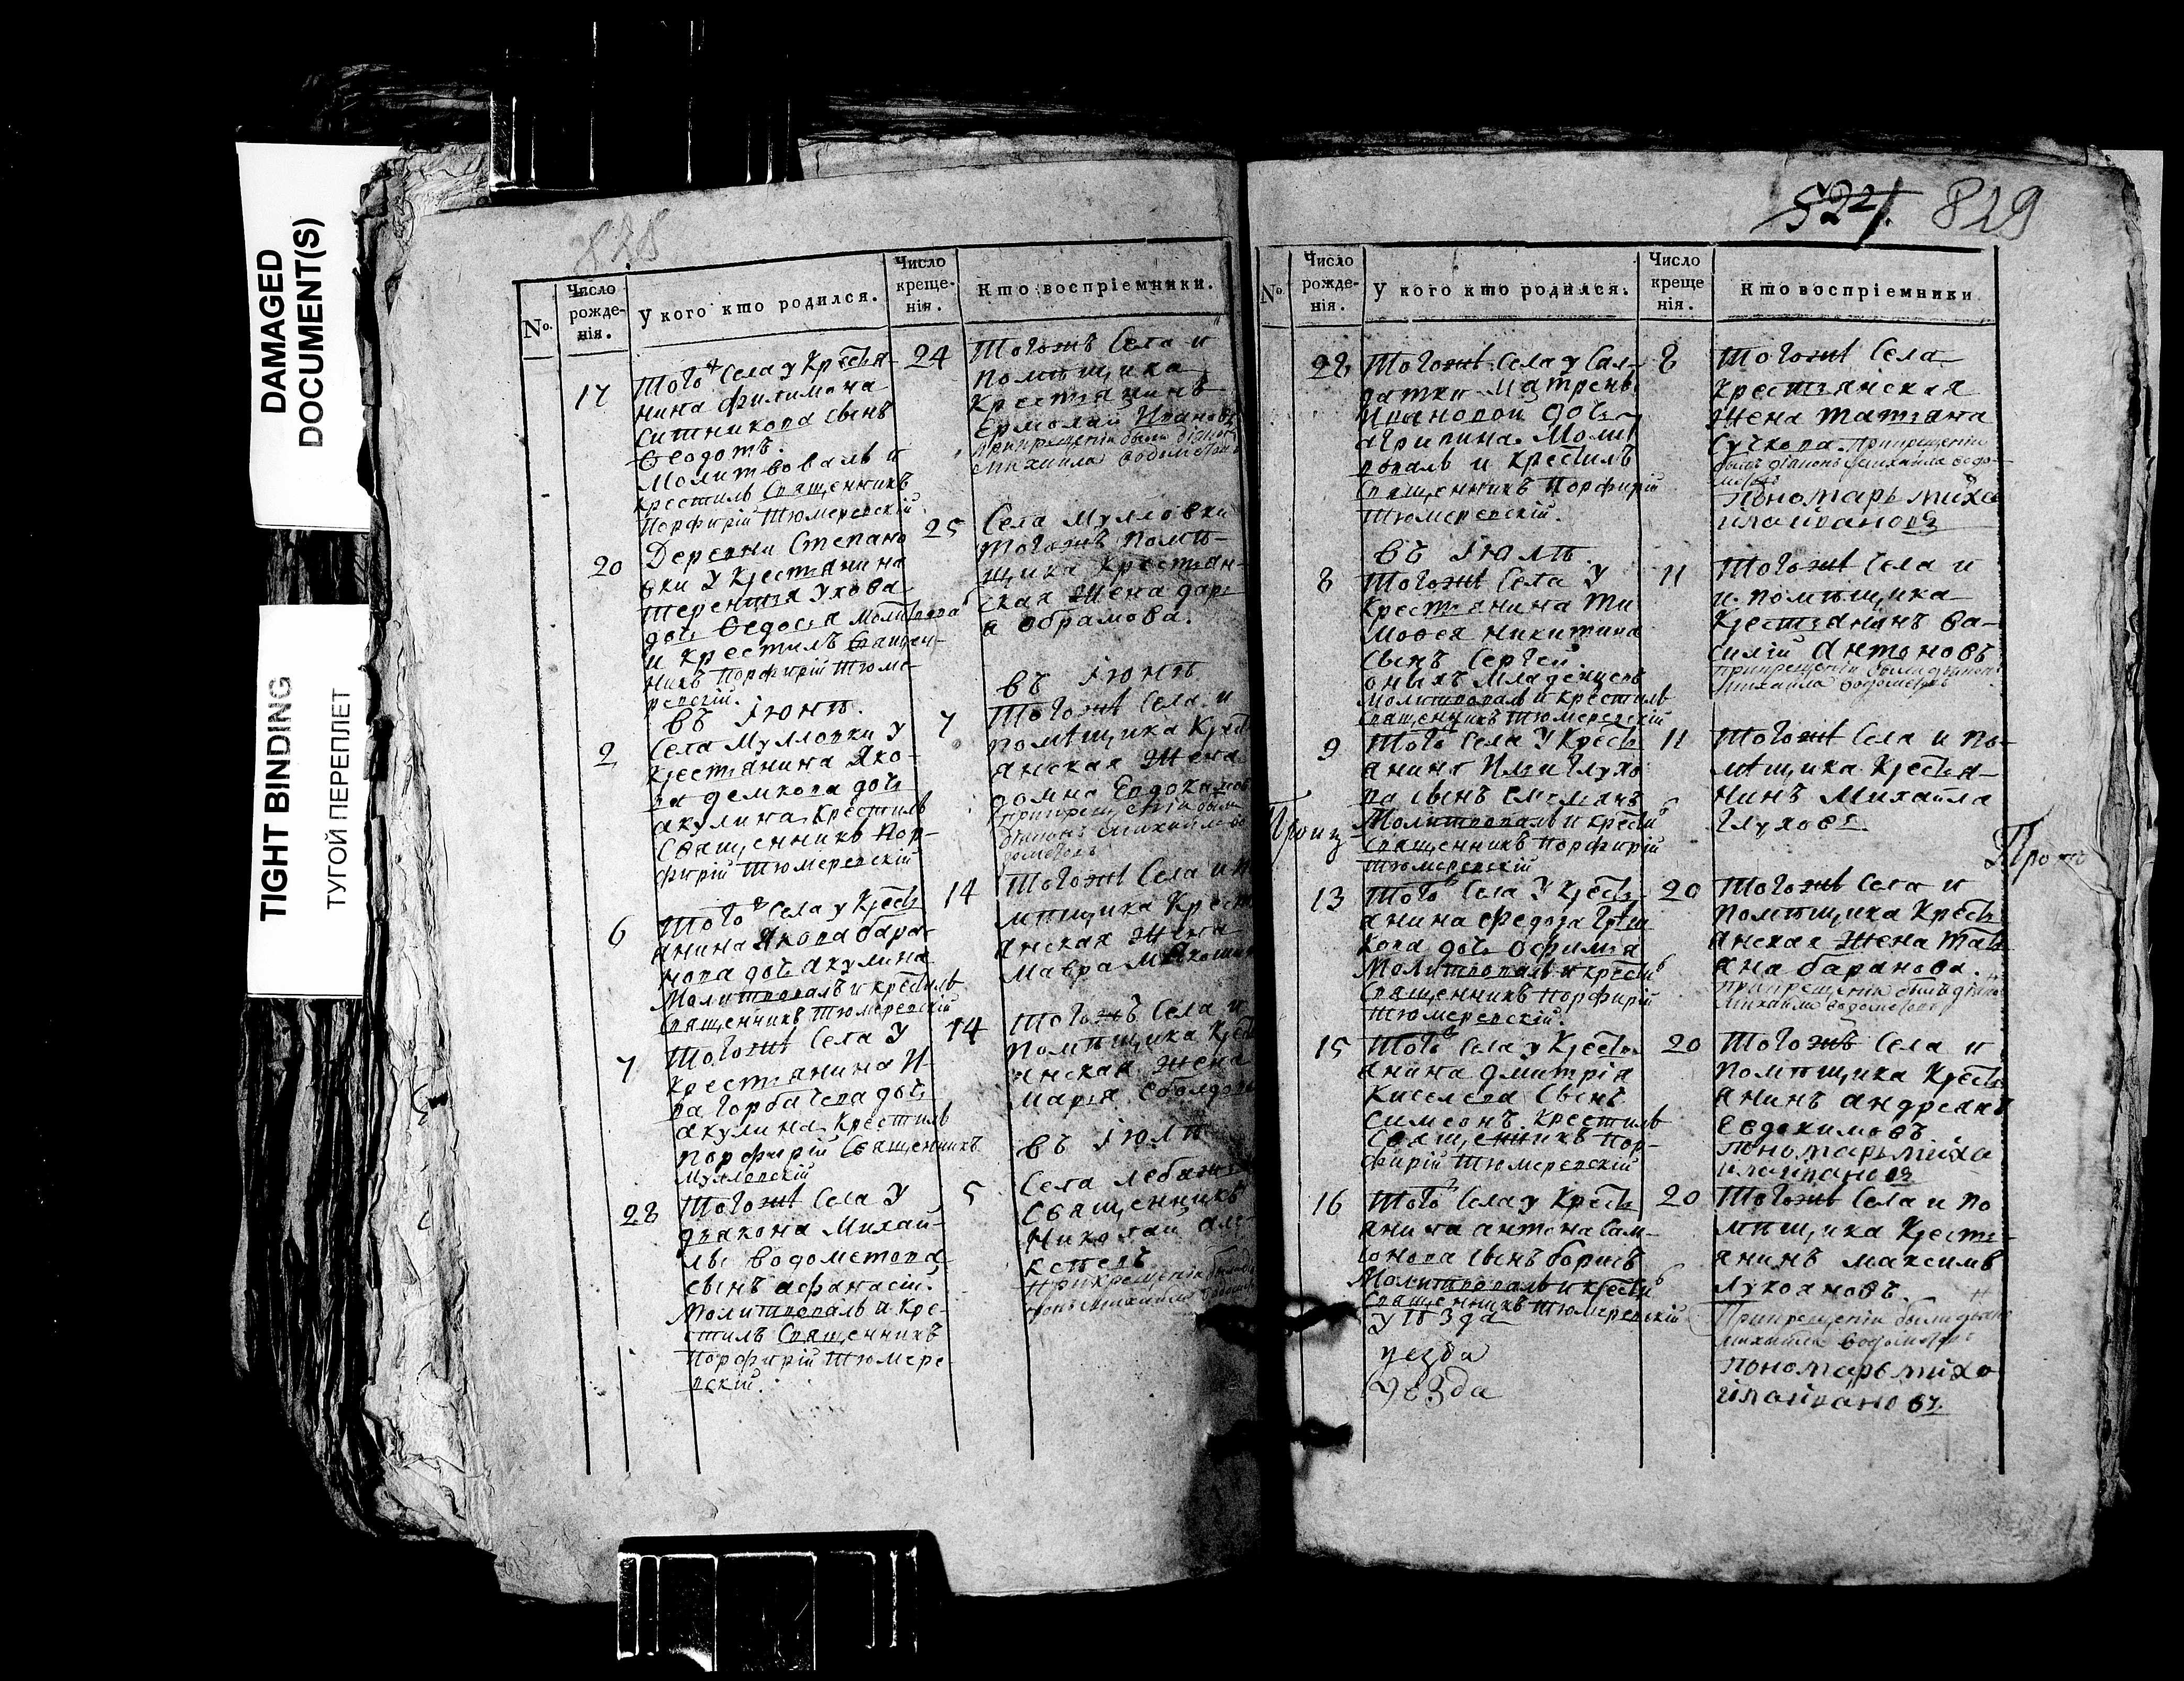 DAMAGED
DOCUMENT(S)
TIGHT BINDING
ТУГОЙ ПЕРЕПЛЕТ
828
№.
Число
рожде-
нія.
У кого кто родился.
Число
креще-
нія.
Кто воспріемники.
17
Того ж Села у Кресья-
нина Филимона
Ситникова сынъ
Ѳеодотъ.
Молитвовалъ и
крестилъ Священникъ
Порфирій Тюмеревскій
24
Тогожъ Села и
помѣщика
Крестьянинъ
Ермолай Ивановъ
при крещеніи были діяконъ
Михаила Водометовъ
20
Деревни Степано
вки у Крестьянина
Терентья Ухова
дочь Ѳедосья Молитвова
и крестилъ Священ-
никъ Порфирій Тюме-
ревскій.
25
Села Мулловки
тогожъ помѣ-
щика Крестьян-
ская жена Дарь
я Обрамова.
въ Іюнѣ.
въ Іюнѣ
2
Села Мулловки у
крестьянина Яко-
ва Демкова дочь
Акулина, Крестилъ
Священникъ Пор-
фирій Тюмеревскій
7
Тогожъ Села и
помѣщика Кресть
янская жена
Домна Евдоким
при крещеніи были
діяконъ Михайло Во
дометовъ
6
Того ж Села у Кресть
янина Якова Бара-
нова дочь Акулина
Молитвовалъ и крестилъ
Священникъ Тюмеревскій
14
Тогожъ Села и по
мѣщика Крест
янская жена
Мавра
7
Тогожъ Села у
Крестьянина И-
ва Горбачева дочь
Акулина, Крестилъ
Порфирій Священникъ
Мулловскій
14
Тогожъ Села и
помѣщика Крест
янская жена
Марья
въ Іюлѣ
28
Тогожъ Села у
дьякона Михай-
лы Водометова
сынъ Афанасій.
Молитвовалъ и кре-
стилъ Священникъ
Порфирій Тюмере-
вскій.
5
Села Лебажья
Священникъ
Николай Але-
ксѣевъ
При крещеніи были дья
конъ Михайла Водомет
524. 829
№.
Число
рожде-
нія.
У кого кто родился.
Число
креще
нія.
Кто воспріемники
22
Тогожъ Села у Сал-
датки Матрены
Ивановой дочь
Агрипина. Молит
вовалъ и крестилъ
Священникъ Порфирій
Тюмеревскій.
8
Тогожъ Села
Крестьянская
жена Татьяна
Сучкова. При крещеніи
былъ діяконъ Михайла Водо-
метовъ
Пономарь Миха
ила Ивановъ
въ Іюлѣ
8
Тогожъ Села у
Крестьянина Ти
мофея Никитина
сынъ Сергей.
оныхъ младенцевъ
Молитвовалъ и крестилъ
Священникъ Тюмеревскій
11
Тогожъ Села и
и помѣщика
Крестьянинъ Ва-
силій Антоновъ
при крещеніи были дьяконъ
Михаила Водометовъ
9
Того Села у Кресть
янина Ильи Глухо
ва сынъ Емельянъ
Молитвовалъ и крестилъ
Священникъ Порфирій
Тюмеревскій
11
Тогожъ Села и по-
мѣщика Кресья-
нинъ Михайла
Глуховъ.
13
Того ж Села у Кресть
янина Федора Грѣш
кова дочь Ефимья
Молитвовалъ и крестилъ
Священникъ Порфирій
Тюмеревскій.
20
Тогожъ Села и
помѣщика Кресть
янская жена Тать
яна Баранова.
при крещеніи былъ діяконъ
Михайла Водометовъ
15
Того ж Села у Кресть
янина Дмитрія
Киселева Сынъ
Симеонъ. Крестилъ
Священникъ Пор-
фирій Тюмеревскій
20
Тогожъ Села и
помѣщика Кресть
янинъ Андреянъ
Евдокимовъ.
Пономарь Миха
ила Ивановъ
16
Того ж Села у Кресть
янина Антона Сам-
сонова сынъ Борисъ
Молитвовалъ и крестилъ
Священникъ Тюмеревскій
уѣзда
уезда
уезда
20
Тогожъ Села и по
мѣщика Кресть-
янинъ Максимъ
Лукояновъ.
При крещеніи были дьякон
Михайла Водометовъ
Пономарь Михо
ила Ивановъ